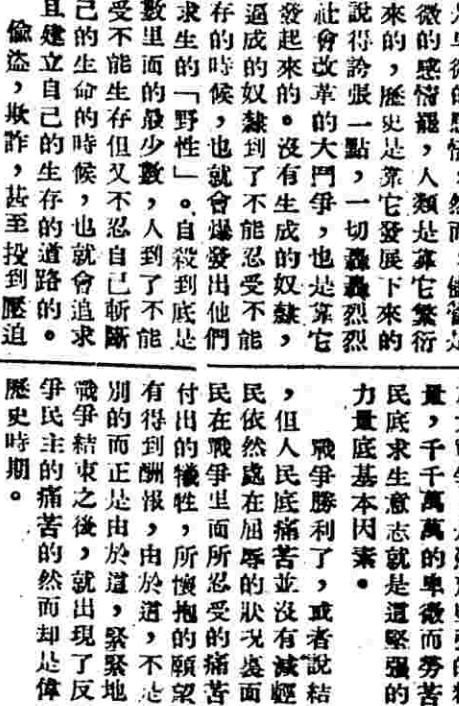 微的感情罷,人類是靠它繁衍
來的,歷史是靠它發展下來的
說得誇張一點,一切轟轟烈烈
社會改革的大鬥爭,也是靠它
發起來的。沒有生成的奴隸,
逼成的奴隸到了不能忍受不能
存的時候,也就會爆發出他們
求生的「野性」。自殺到底是
數里面的最少數,人到了不能
受不能生存但又不忍自己斬斷
己的生命的時候,也就會追求
且建立自己的生存的道路的。
偷盜,欺詐,甚至投到壓迫
量,千千萬萬的卑微而勞苦
民底求生意志就是這堅强的
力量底基本因素。
戰爭勝利了,或者說結
,但人民底痛苦並沒有減輕
民依然處在屈辱的狀况裏面
民在戰爭里面所忍受的痛苦
付出的犧牲,所懷抱的願望
有得到酬報,由於這,不是
別的而正是由於這,緊緊地
戰爭結束之後,就出現了反
爭民主的痛苦的然而却是偉
歷史時期。